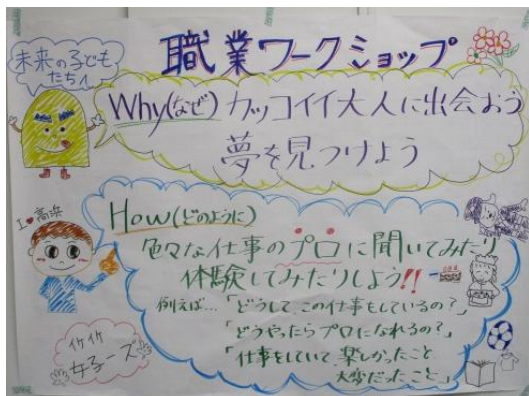 職業ワークショップ
未来の子ども
たちへ
Why(なぜ) カッコイイ大人に出会おう
夢を見つけよう
I♥高浜
How(どのように)
色々な仕事のプロに聞いてみたり
体験してみたりしよう!!
例えば…「どうして、この仕事をしているの?」
「どうやったらプロになれるの?」
「仕事をしていて楽しかったこと
大変だったこと」
竹竹
女子ーズ